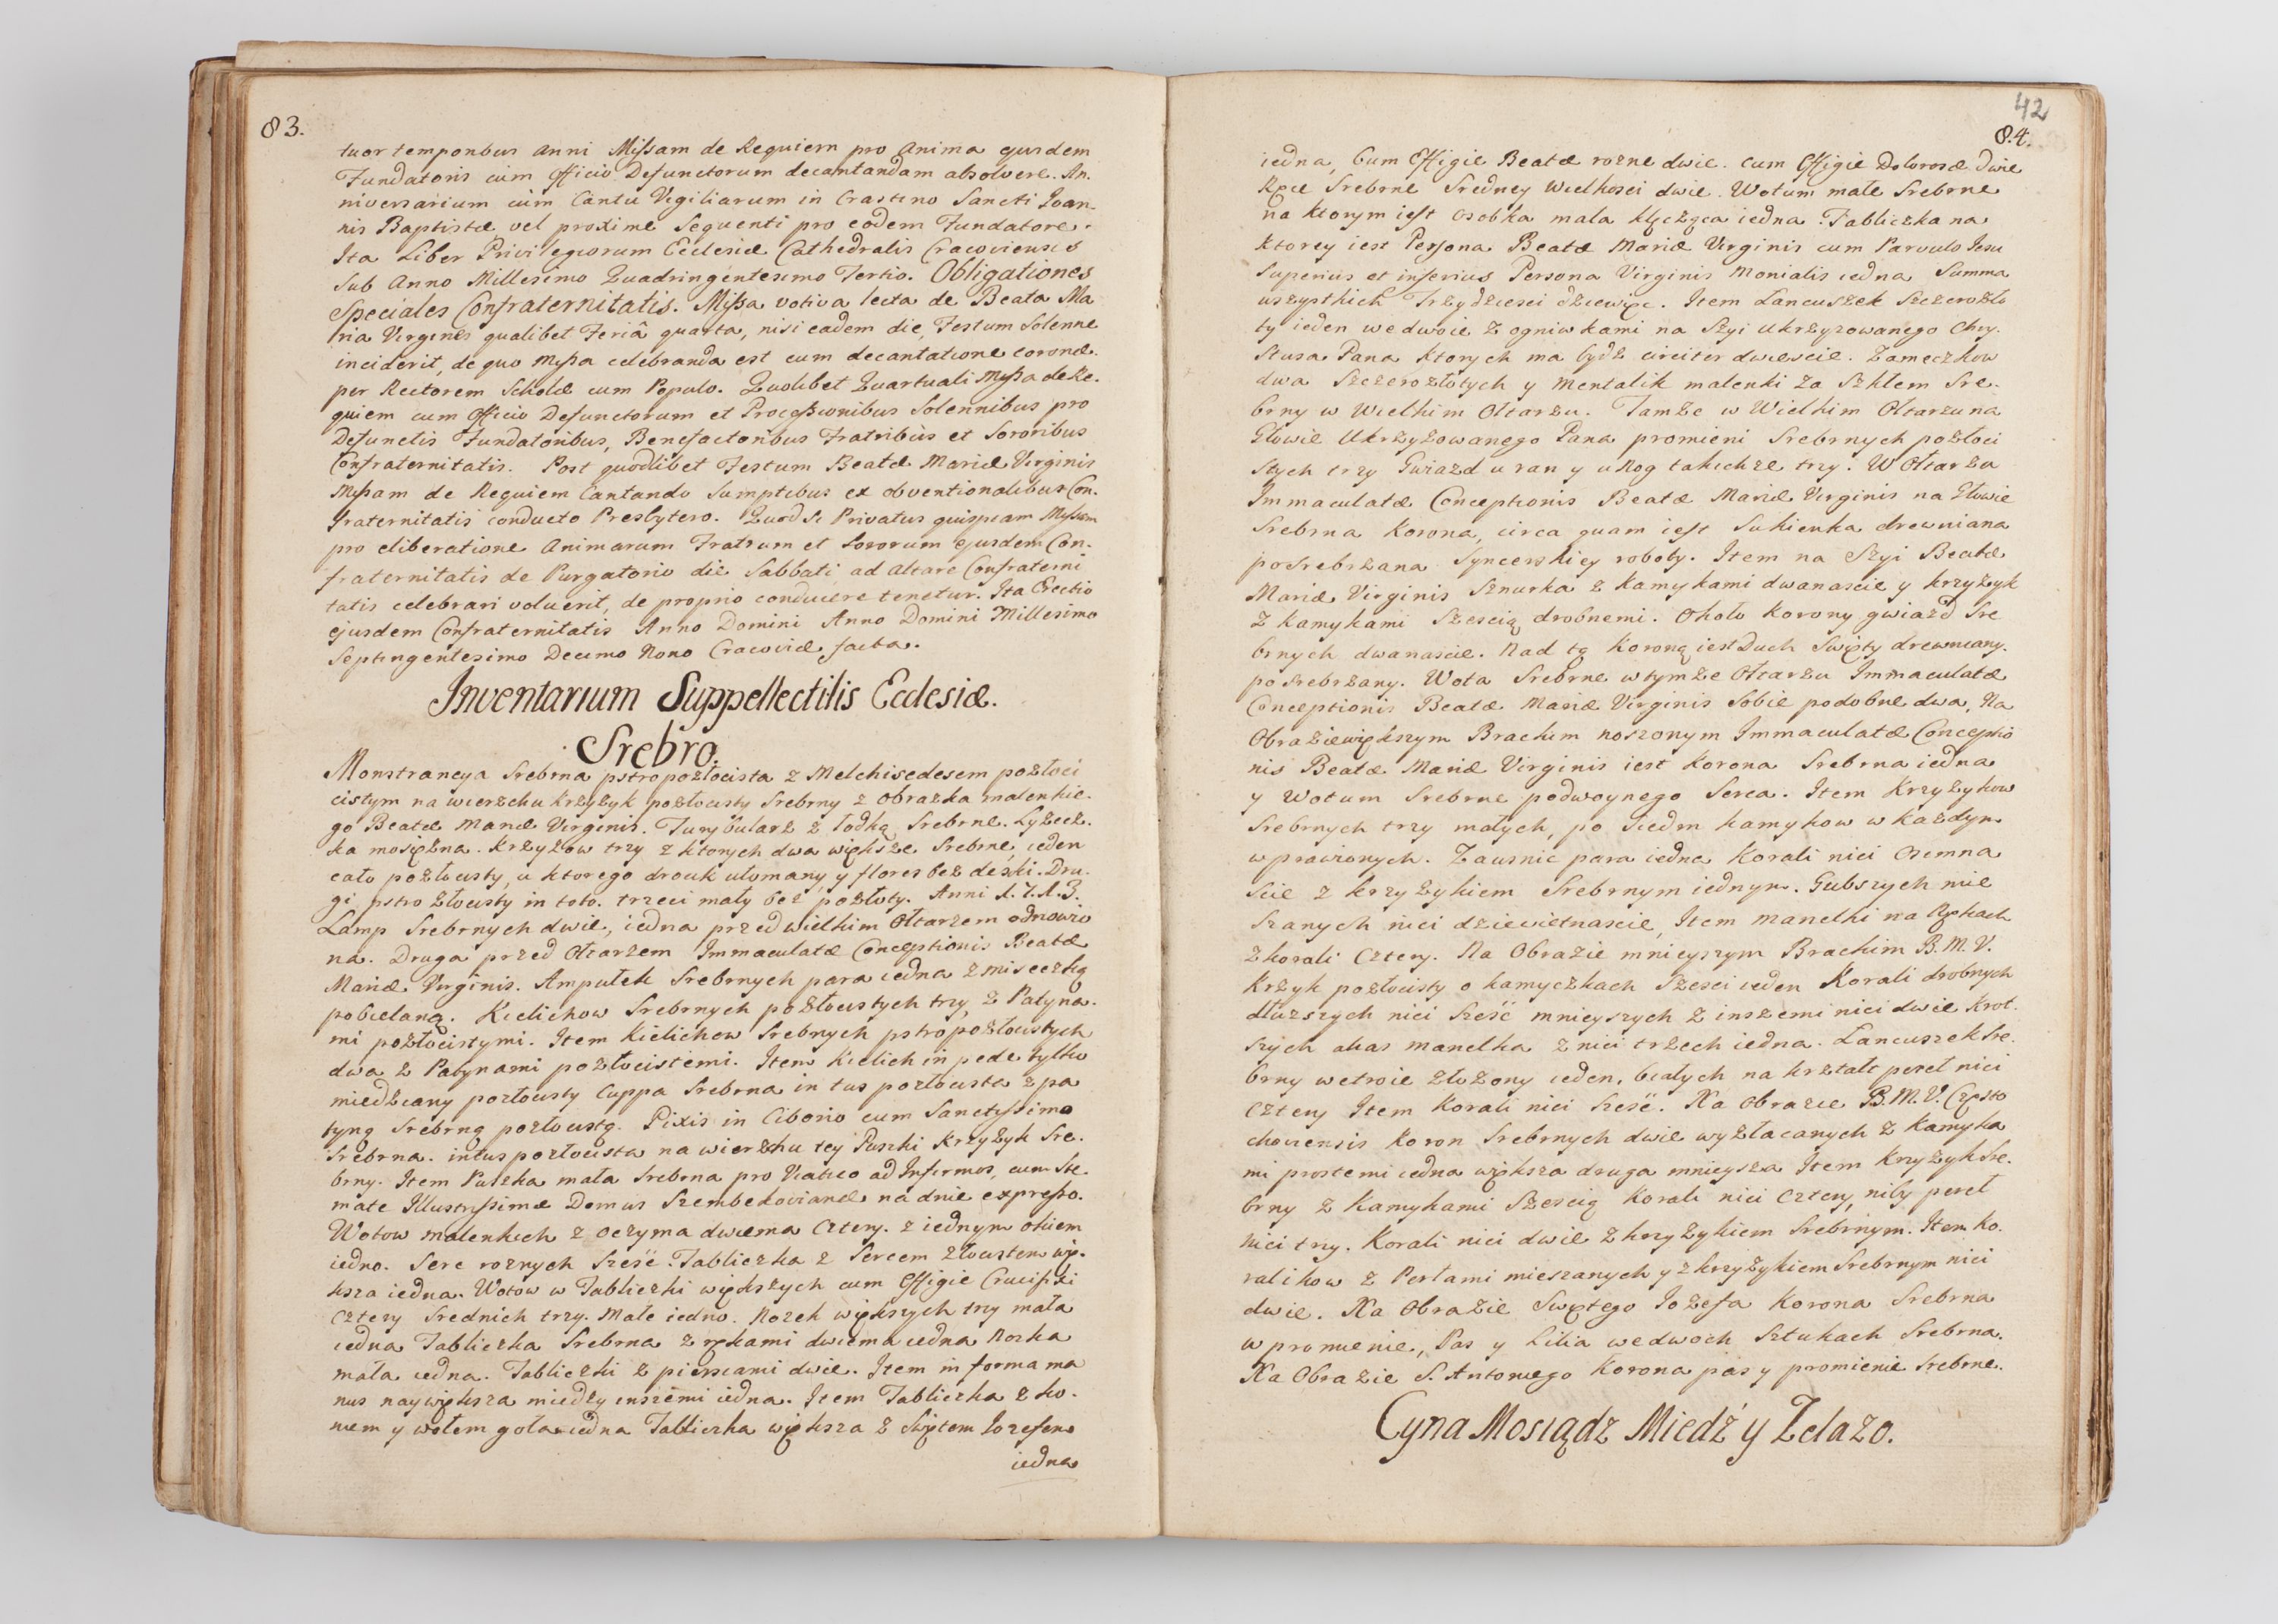 83.
tuor temporibus anni Missam de Requiem pro Anima ejusdem
Fundatoris cum Officio Defunctorum decantandam absolvere. An-
niversarium cum Cantu Vigiliarum in Crastino Sancti Ioan-
nis Baptistæ vel proxime Sequenti pro eodem Fundatore.
Ita Liber Privilegiorum Ecclesiæ Cathedralis Cracoviensis
Sub Anno Millesimo Quadringentesimo Tertio. Obligationes
Speciales Confraternitatis. Missa votiva lecta de Beata Ma
ria Virgines qualibet Feriâ quarta, nisi eadem die, Festum Solenne
inciderit, de quo Missa celebranda est cum decantatione coronæ.
per Rectorem Scholæ cum Populo. Quolibet Quartuali Missa de Re-
quiem cum Officio Defunctorum et Processionibus Solennibus pro
Defunctis Fundatoribus, Benefactoribus Fratribus et Sororibus
Confraternitatis. Post quodlibet Festum Beatæ Mariæ Virginis
Missam de Requiem Cantando Sumptibus ex obventionalibus Con-
fraternitatis conducto Presbytero. Quod Si Privatus quispiam Missam
pro eliberatione Animarum Fratrum et Sororum ejusdem Con-
fraternitatis de Purgatorio die Sabbati ad Altare Confraterni
tatis celebrari voluerit, de proprio conducere tenetur. Ita Erectio
ejusdem Confraternitatis Anno Domini Anno Domini Millesimo
Septingentesimo Decimo Nono Cracoviæ facta.
Inventarium Suppellectilis Ecclesiæ.
Srebro.
Monstrancya Srebrna pstropozłocista z Melchisedesem pozłoci
cistym na wierzchu krzyżyk pozłocisty Srebrny z obrazka malenkie-
go Beatæ Mariæ Virginis. Turybularz z łodką Srebrne. Łyżecz-
ka mosiężna. Krzyżow trzy z ktorych dwa większe Srebrne, ieden
cało pozłocisty, u ktorego drouk ułomany, y flores bez deski. Dru-
gi pstro złocisty in toto. trzeci mały bez pozłoty. Anni
Lamp Srebrnych dwie, iedna przed wielkim Ołtarzem odnowio
na. Druga przed Ołtarzem Immaculatæ Conceptionis Beatæ
Mariæ Virginis. Ampułek Srebrnych para iedna z miseczką
pobielaną. Kielichow Srebrnych pozłocistych trzy, z Patyna-
mi pozłocistymi. Item Kielichow Srebrnych pstropozłocistych
dwa z Patynami pozłocistemi. Item Kielich in pede tylko
miedziany pozłocisty Cuppa Srebrna in tus pozłocista z pa
tyną Srebrną pozłocistą. Pixis in Ciborio cum Sanctissimo
Srebrna. intus pozłocista na wierzchu tey Puszki Krzyżyk Sre-
brny. Item Puszka mała Srebrna pro Viatico ad Infirmos, cum Ste-
mate Illustrissimæ Domus Szembekovianæ na dnie expresso.
Wotow malenkich z oczyma dwiema cztery. z iednym okiem
iedno. Serc roznych Sześć. Tabliczka z Sercem złocistem wię-
ksza iedna. Wotow w Tabliczki większych cum Effigie Crucifixi
cztery Srednich trzy. Małe iedno. Nozek większych trzy mała
iedna Tabliczka Srebrna z rękami dwiema iedna Nozka
mała iedna. Tabliczki z piersiami dwie. Item in forma ma
nus naywiększa miedzy inszemi iedna. Item Tabliczka z ko-
niem y wołem goła iedna Tabliczka większa z Swiętem Iozefem
iedna
42
84.
iedna, Cum Effigie Beatæ rozne dwie. cum Effigie Dolorosæ dwie
Ręce Srebrne Sredney wielkosci dwie. Wotum małe Srebrne
na ktorym iest osobka mala klęcząca iedna. Tabliczka na
ktorey iest Persona Beatæ Mariæ Virginis cum Parvulo Iesu
Superius et inferius Persona Virginis Monialis iedna Summa
wszystkich Trzydziesci dziewięc. Item Lancuszek Szczerozło
ty ieden we dwoie z ogniwkami na Szyi Ukrzyzowanego Chry-
stusa Pana ktorych ma bydz circiter dwiescie. Zameczkow
dwa Szczerozłotych y Mentalik malenki za Szkłem Sre-
brny w Wielkim Ołtarzu. Tamże w Wielkim Ołtarzu na
Głowie Ukrzyżowanego Pana promieni Srebrnych pozłoci
stych trzy Gwiazd u ran y u Nog takichze trzy. W Ołtarzu
Immaculatæ Conceptionis Beatæ Mariæ Virginis na Głowie
Srebrna Korona, circa quam iest Sukienka drewniana
posrebrzana Syncerskiey roboty. Item na Szyi Beatæ
Mariæ Virginis Sznurka z Kamykami dwanascie y krzyżyk
z Kamykami Szescią drobnemi. Około Korony gwiazd Sre
brnych dwanascie. Nad tą Koroną iest Duch Swięty drewniany.
posrebrzany. Wota Srebrne w tymże Ołtarzu Immaculatæ
Conceptionis Beatæ Mariæ Virginis Sobie podobne dwa. Na
Obrazie większym Brackim noszonym Immaculatæ Conceptio
nis Beatæ Mariæ Virginis iest Korona Srebrna iedna
y Wotum Srebrne podwoynego Serca. Item Krzyżykow
Srebrnych trzy małych, po Siedm kamykow w każdym
wprawionych. Zausnic para iedna Korali nici osmna
scie z krzyżykiem Srebrnym iednym. Grubszych mie
szanych nici dziewietnascie, Item Manelki na Rękach
z korali cztery. Na Obrazie mnieyszym Brackim B. M. V.
Krżyk pozłocisty o kamyczkach Szesci ieden Korali drobnych
dłuzszych nici Sześć mnieyszych z inszemi nici dwie Krot-
szych alias manelka z nici trzech iedna. Lancuszek Sre-
brny wetroie złożony ieden, białych na krztałt pereł nici
cztery Item Korali nici Sześć. Na Obrazie B. M. V. Często
choviensis Koron Srebrnych dwie wyzłacanych z Kamyka
mi prostemi iedna większa druga mnieysza Item Krzyżyk Sre-
brny z Kamykami Szescią Korali nici Cztery, niby pereł
nici trzy. Korali nici dwie z krzyżykiem Srebrnym. Item Ko-
ralikow z Perłami mieszanych y z krzyżykiem Srebrnym nici
dwie. Na Obrazie Swiętego Iozefa Korona Srebrna
w promienie, Pas y Lilia we dwoch Sztukach Srebrna.
Na Obrazie S. Antoniego Korona pas y promienie Srebrne.
Cyna Mosiądz Miedź y Żelazo.